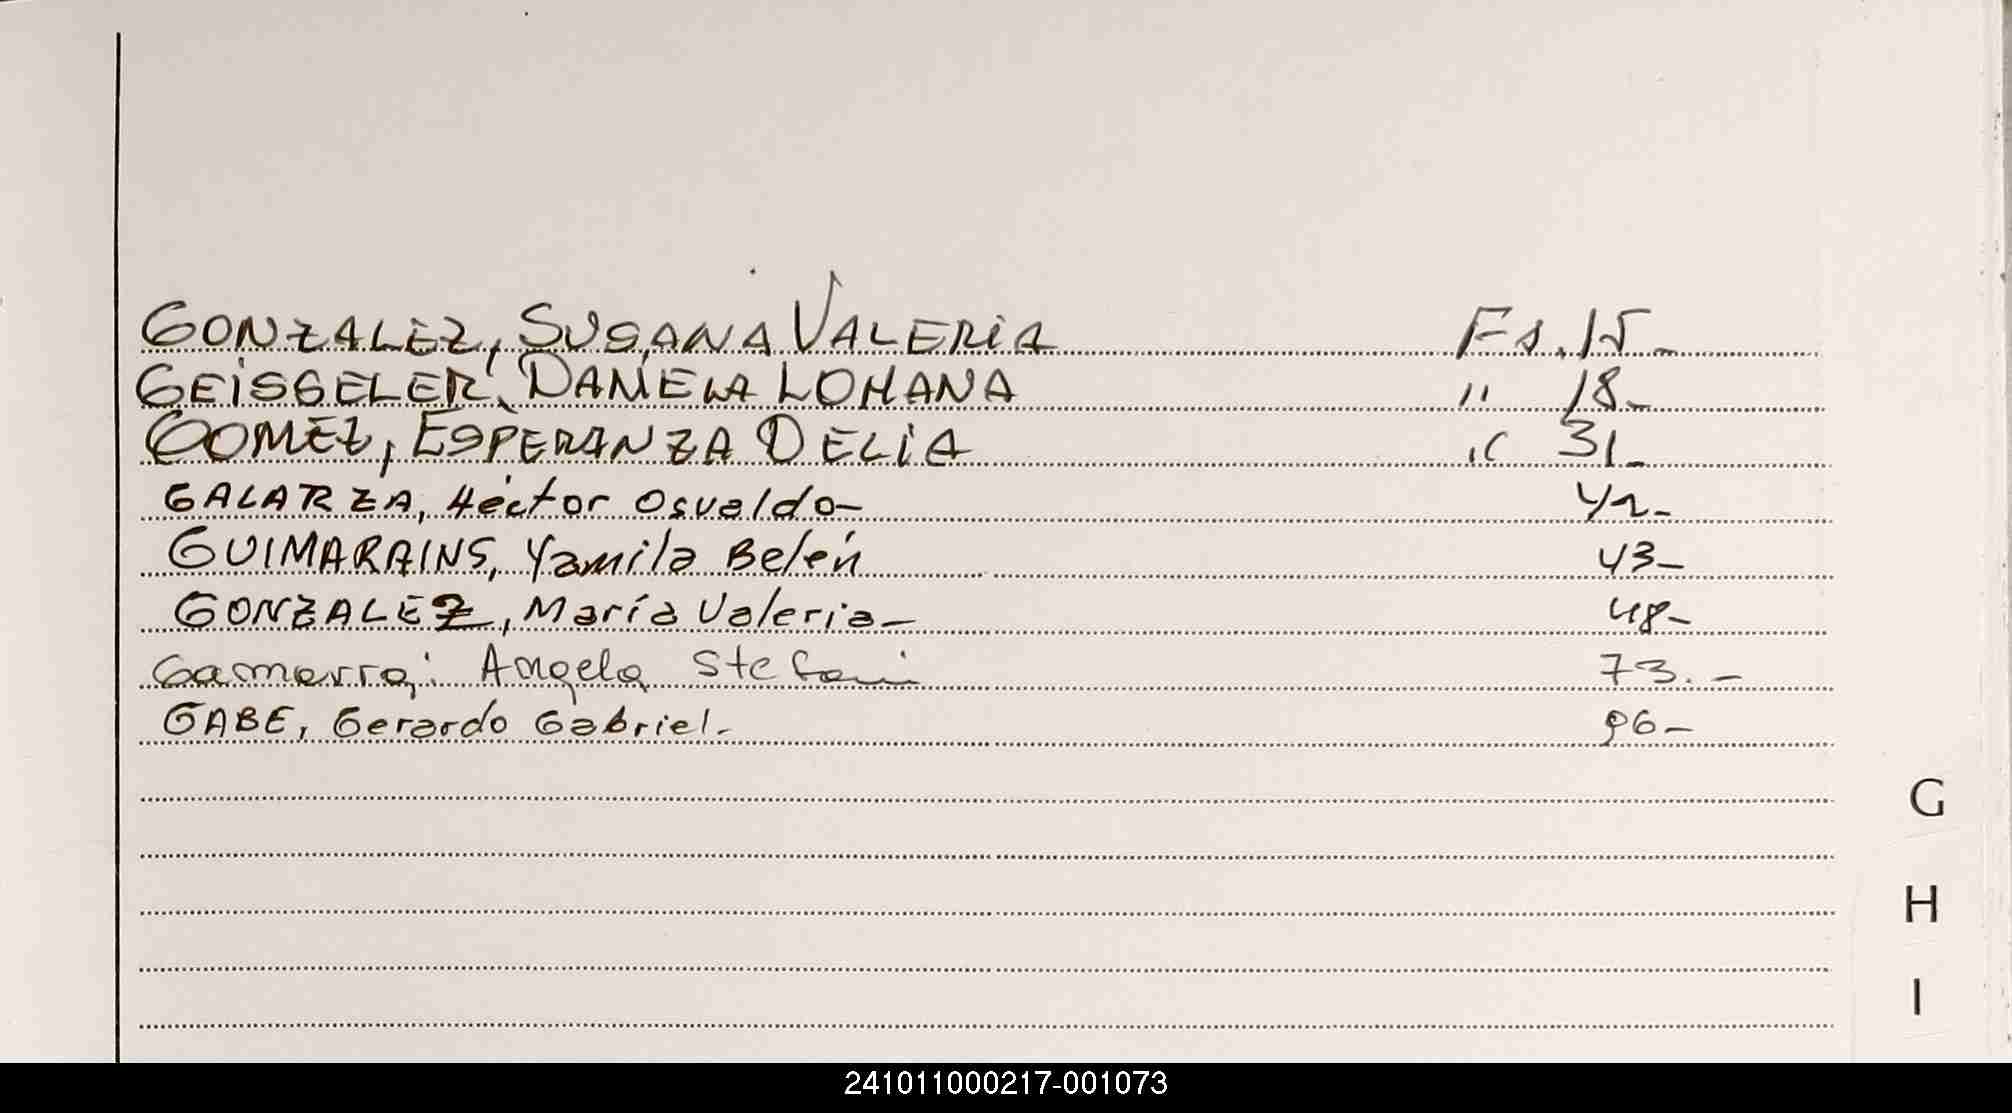 GONZALEZ, SUSANA VALERIA Fs. 15-
GEISSELER, DANIELA LOHANA " 18-
GOMEZ, ESPERANZA DELIA " 31-
GALARZA, Héctor Osvaldo- 42-
GUIMARAINS, Yamila Belén 43-
GONZALEZ, María Valeria- 48-
Gamarra; Angela Stefani 73.-
GABE, Gerardo Gabriel.- 96-
G
H
I
241011000217-001073